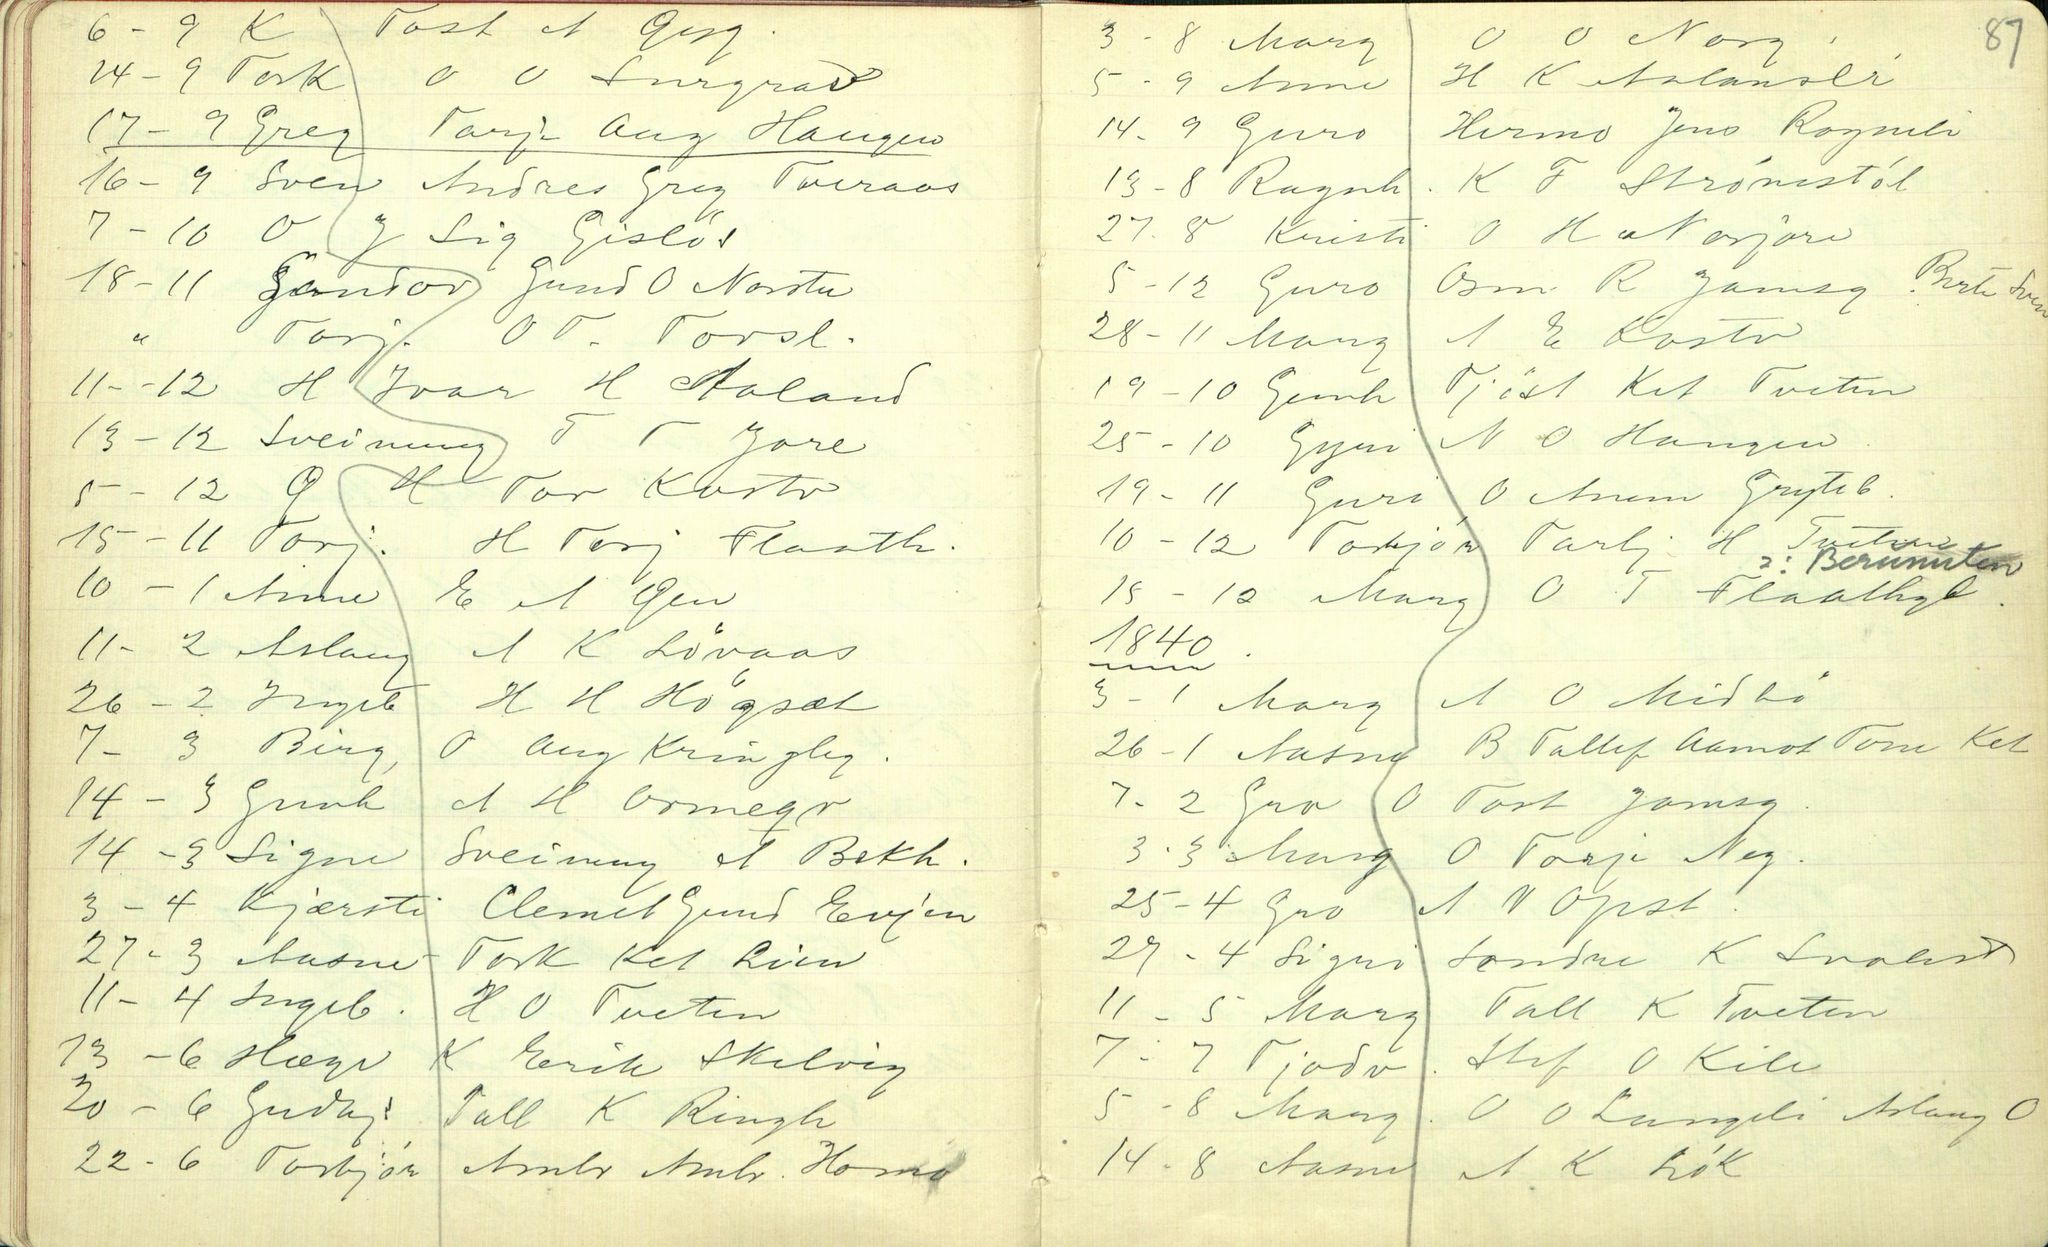 6 - 9 K Tost A
14 - 9 Tork O O
17 - 9 Greg Tarje Aug Haugen
16 - 9 Sven Andres Greg Tveraas
7 - 10 O J Sig Gislös
18 - 11 Sandor Gund O Nordtu
" Torj. O T. Torsl.
11 - 12 H Ivar H Aaland
13 - 12 Sveinung T T Jore
5 - 12 O H Tov Kostv
15 - 11 Torj. H Torj Flaath.
10 - 1 Anne E A
11 - 2 Aslaug A K Lövaas
26 - 2 Ingeb H H Högsæt
7 - 3 Birg, O Aug Kringleg.
14 - 3 Gunh A H Ormegr
14 - 3 Signe Sveinung A Bekh.
3 - 4 Kjærsti Clemet Gund Evjen
27 - 3 Aasne Tork Ket Lien
11 - 4 Ingeb. H O Tveten
13 - 6 Hæge K Erik Skilvig
20 - 6 Tall K Ringh
22 - 6 Torbjör Ambr Ambr. Homo
87
3 - 8 Marg O O Norg.
5 - 9 Anne H K
14 - 9 Guro Hermo Jens Rogneli
13 - 8 Ragnh. K F Strömstöl
27 - 8 Kristi O H Norjore
5 - 12 Guro Osm R Jamsg Berte Sven
28 - 11 Marg A E Kostv
19 - 10 Gunh Tjöst Ket Tveten
25 - 10 Gyri N O Haugen
19 - 11 Guri O Anem Gryteb.
10 - 12 Torbjör Torbj H Tveten
2: Berünuten
15 - 12 Marg O T Flaathyl.
1840.
3 - 1 Marg A O Midbö
26 - 1 Aasne B Tallef Aamot Tone Ket
7 - 2 Gro O Tost Jamsg.
3 - 3 Marg O Torje Neg.
25 - 4 Gro A N Opst.
27 - 4 Sigri Sondre K
11 - 5 Marg Tall K Tveten
7 - 7 Tjodv. Stef O Kile
5 - 8 Marg. O O Lungeli Aslaug O
14 - 8 Aasne A K Lök